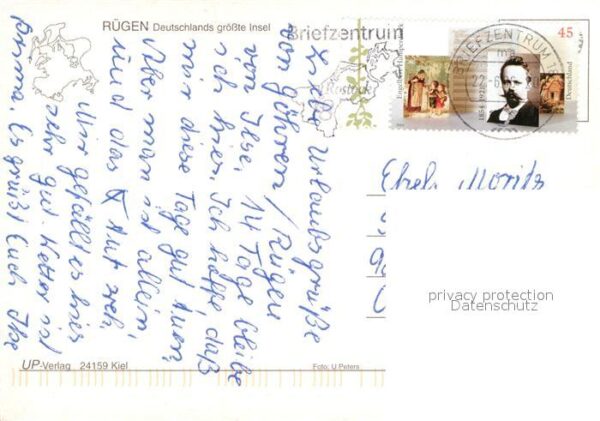 RÜGEN Deutschlands größte Insel
Liebe Urlaubsgrüße
von Göhren / Rügen
von Ilse. 14 Tage bleibe
ich hier. Ich hoffe, daß
mir diese Tage gut tuen.
Aber man ist allein,
und das tut weh.
Mir gefällt es hier
sehr gut. Wetter ist
prima. Es grüßt Euch Ilse
UP-Verlag 24159 Kiel
Foto: U.Peters
Briefzentrum
Rostock
BRIEFZENTRUM
45
Engelbert Humperdinck
1854-1921
Deutschland
Ehel. Moritz
privacy protection
Datenschutz